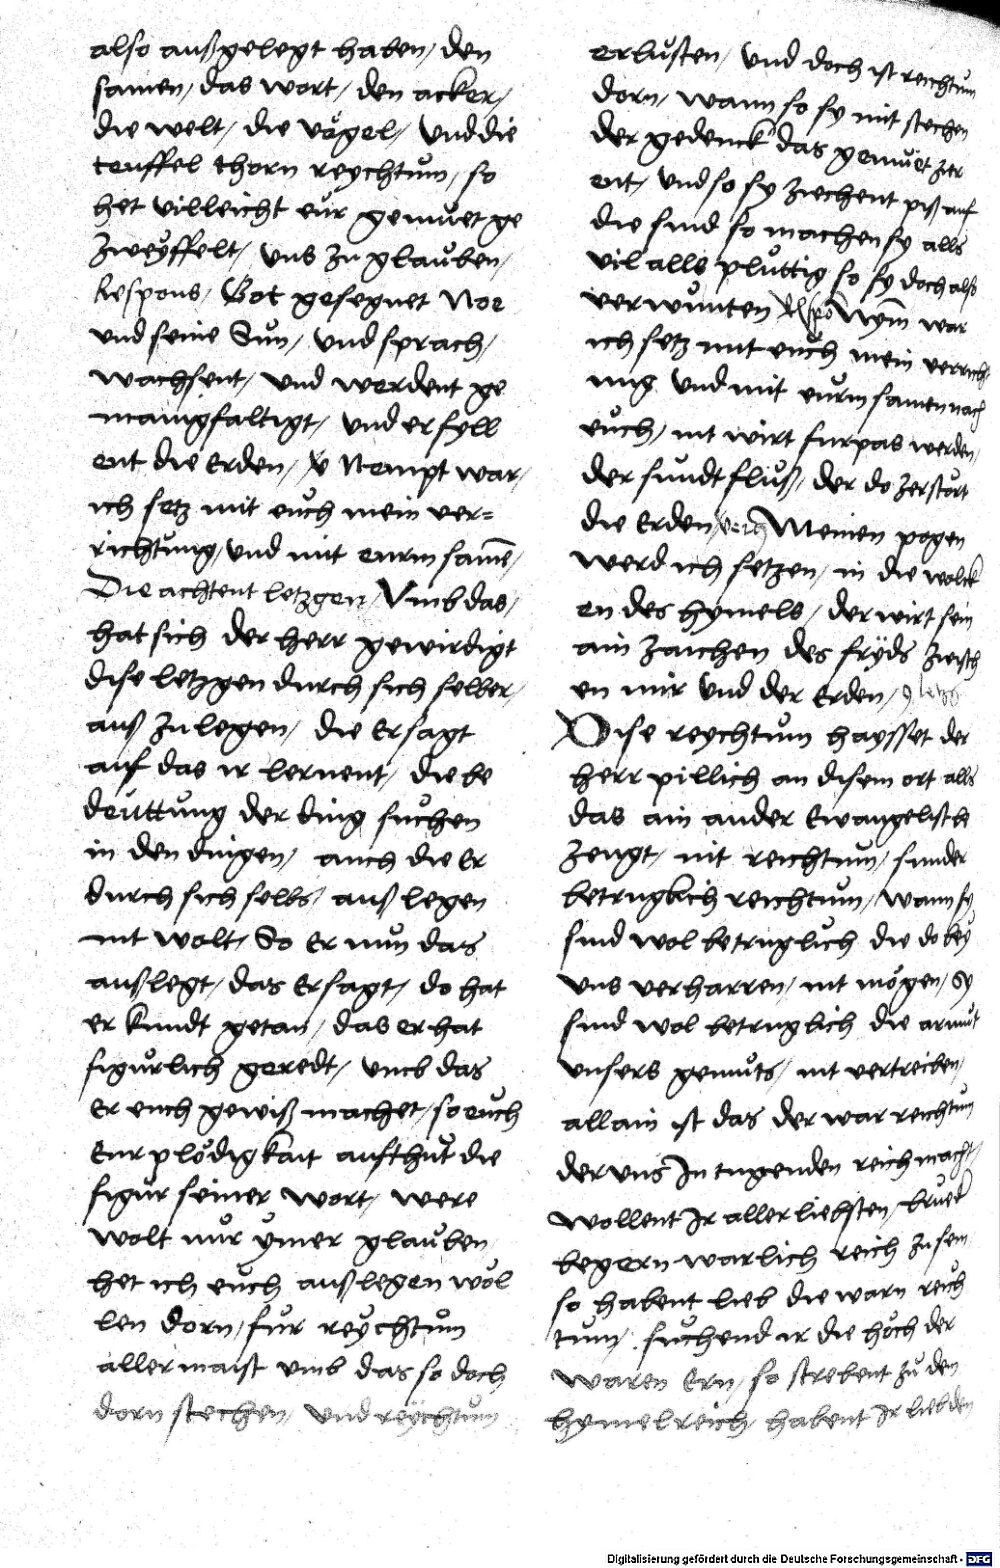 also außgelegt haben / den
samen / das wort / den acker /
die welt / die vögel / Und die
teuffel thorn reychtum / so
het villeicht eur gemuet ge
zweyffelt / uns zu glauben /
Respons / Got gesegnet Noe
und seine Sun / und sprach /
wachsent / und werdent ge
manigfaltigt / und erfyll
ent die Erden / Nempt war /
ich setz mit euch mein ver=
richtung / und mit eurm same /
Die achtent letzgen / Umb das /
hat sich der herr gewirdigt
dise letzgen durch sich selber /
auß zulegen / die Er sagt
auf das ir lernent / die be
deuttung der ding suchen
in den dingen / auch die Er
durch sich selbs / auß legen
nit wolt / So Er nun das
außlegt / das Er sagt / do hat
er kundt getan / das er hat
figurlich geredt / umb das
Er euch gewiß machet / so euch
Eur plödigkait aufthut die
figur seiner wort / were
wolt nur ymer glauben
het ich euch außlegen wol
len dorn / fur reychtum
aller maist umb das so doch
dorn stechen / und reychtum
erlusten / Und doch ist reichtum
dorn / wann so sy mit stechen
der gedenck das gemuet zer
ent / und so sy ziechent piß auf
die sund so machen sy alls
vil alls pluttig so sy doch also
verwunten Respo Nym war
ich setz mit euch mein verrich
ung und mit eurm samen nach
euch / nit wirt furpas werden /
der sundtfluß / der do zerstört
die Erden / vers Meinen pogen
werd ich setzen / in die wolck
en des hymels / der wirt sein
ain zaichen des fryds zwisch
en mir und der Erden / 9 letzg
Dise reychtum haysset der
herr pillich an disem ort alls
das ain ander Ewangelist be
zeugt / nit reichtum / sunder
betruglich reichtum / wann sy
sind wol betruglich die do bey
uns verharren / nit mögen / Sy
sind wol betruglich die armut
unsers gemuts / nit vertreiben /
allain ist das der war reichtum
der uns In tugenden reich macht /
wollent Ir aller liebsten / brued
begern warlich reich zu sein
so habent lieb die warn reich
tum / suchend ir die höch der
waren Ern / so strebent zu dem
hymelreich / habent Ir lieb den